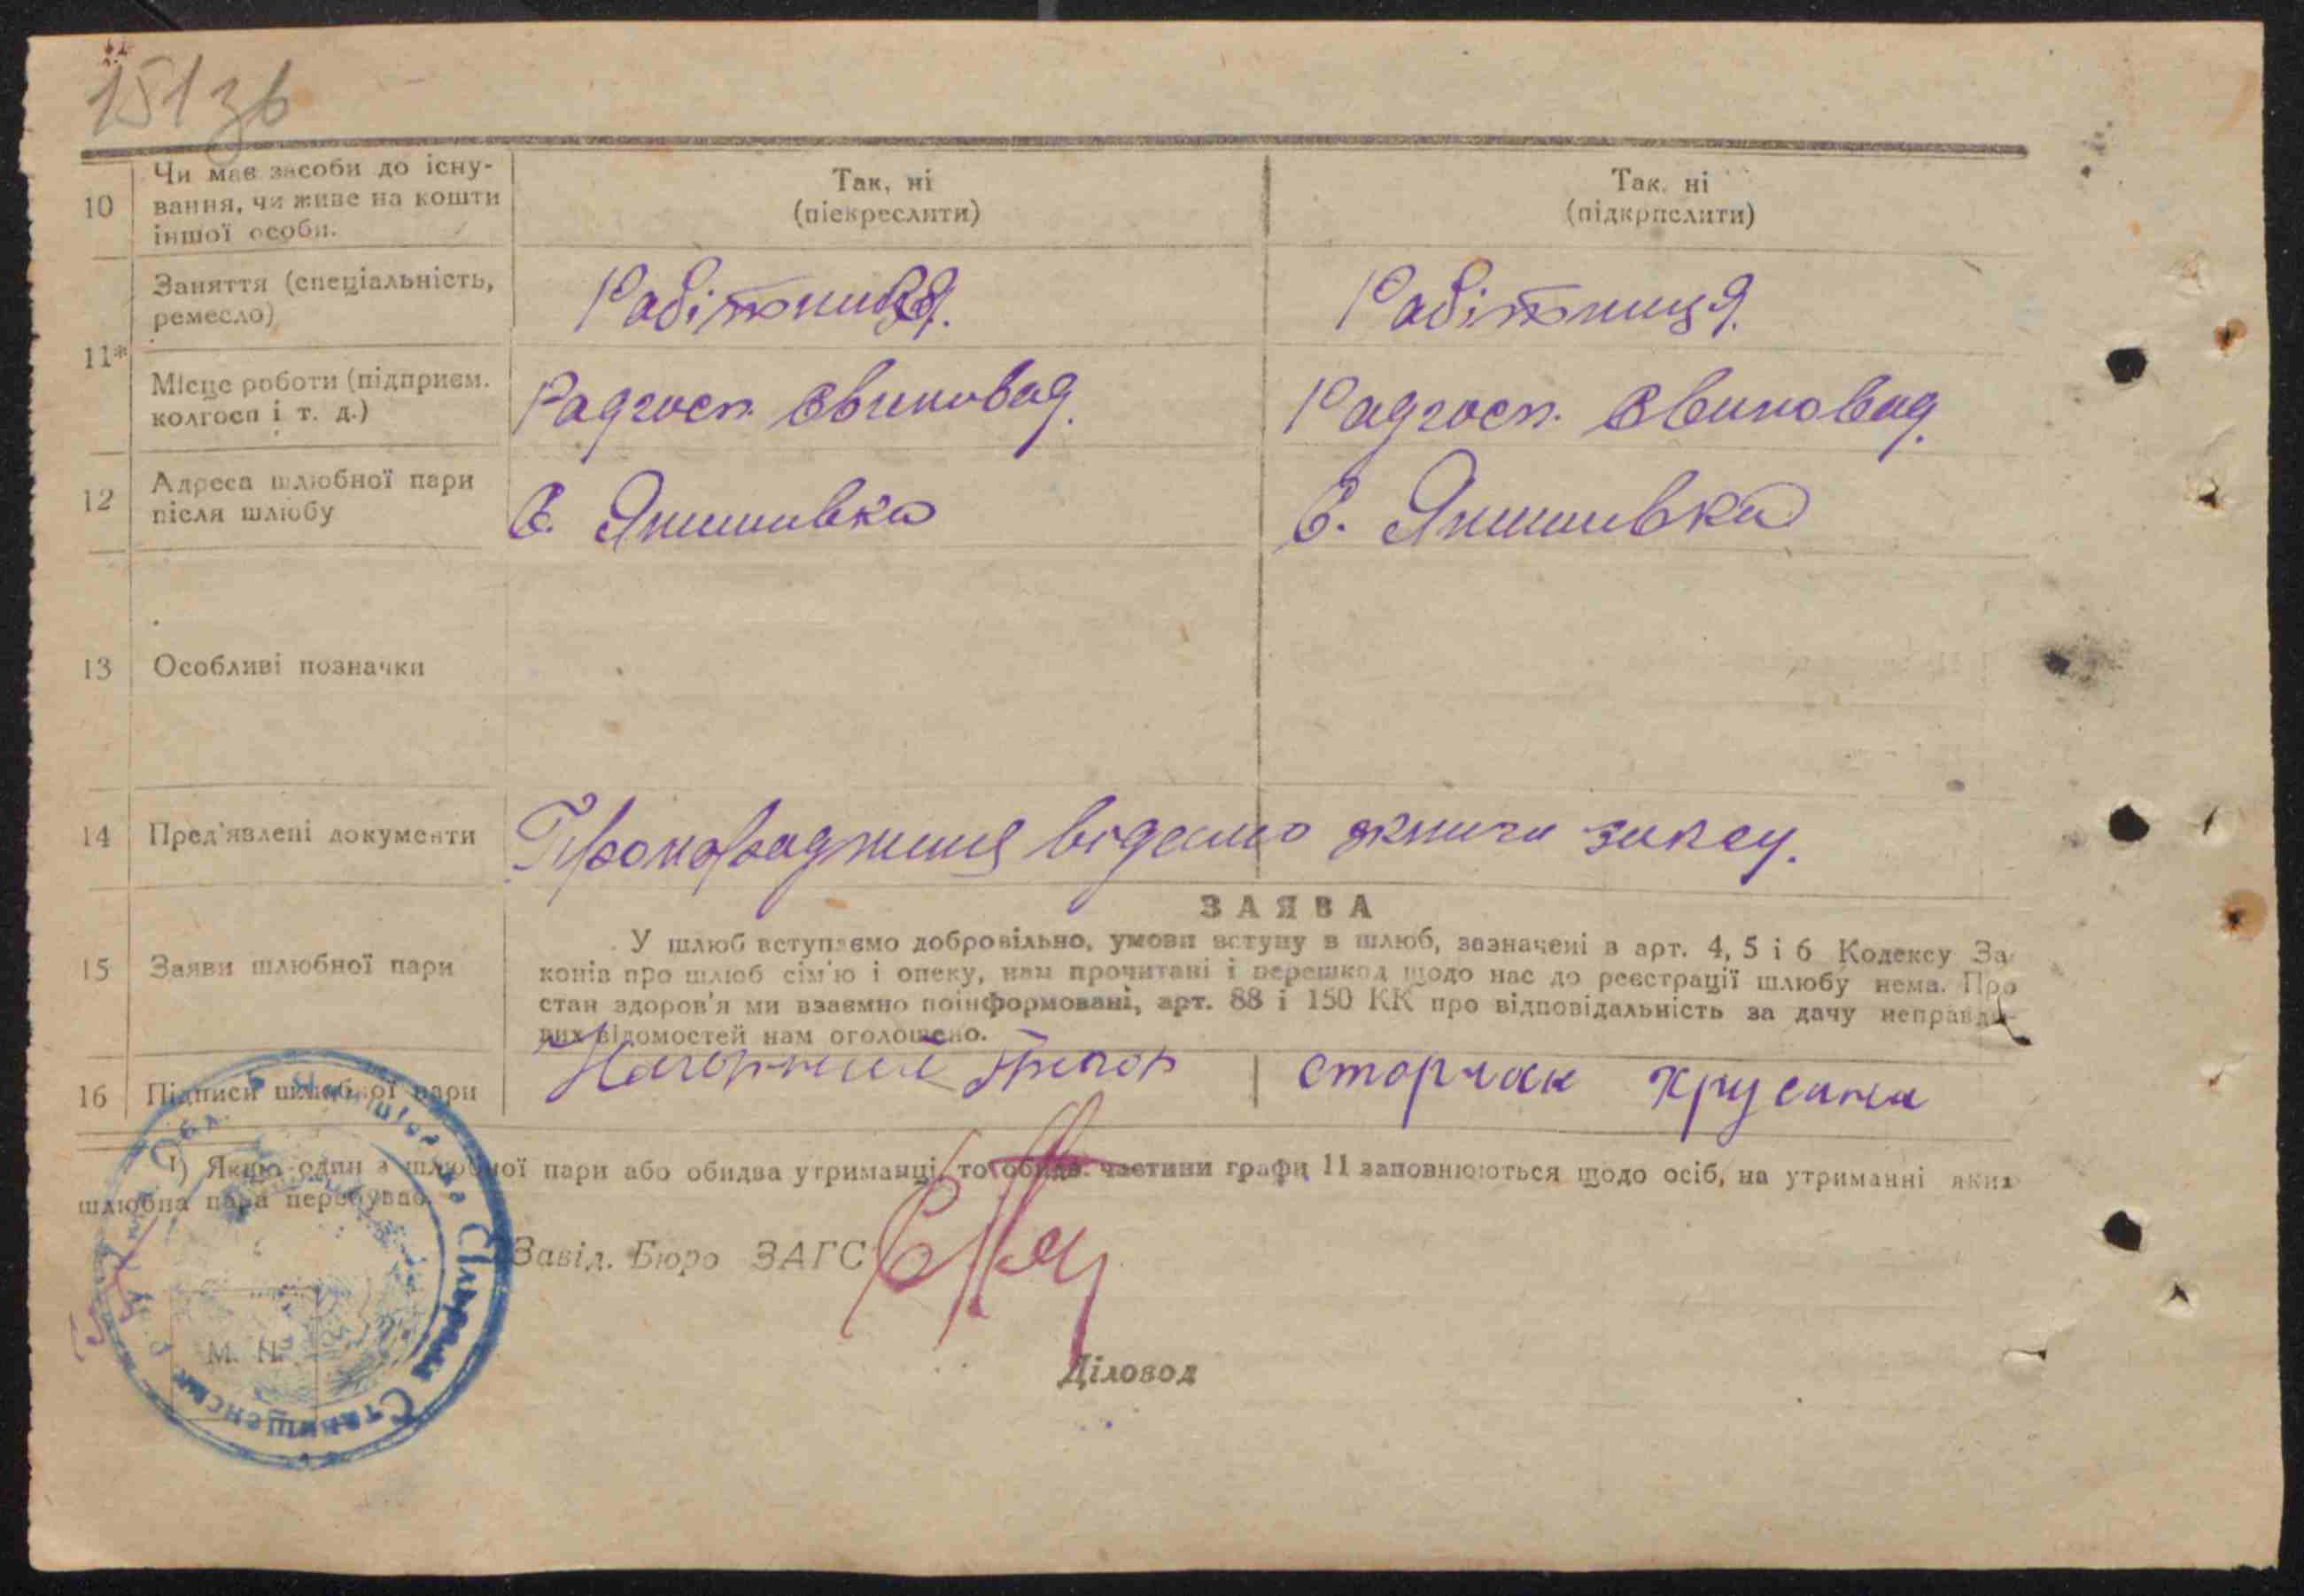 151зв
10
Чи має засоби до існу-
вання, чи живе на кошти
іншої особи.
Так, ні
(піекреслити)
Так, ні
(підкрпслити)
11*
Заняття (спеціальність,
ремесло)
Робітниця.
Робітниця.
Місце роботи (підприєм.
колгосп і т. д.)
Радгосп. Свиновод.
Радгосп. Свиновод.
12
Адреса шлюбної пари
після шлюбу
С. Янишивка
С. Янишивка
13
Особливі позначки
14
Пред'явлені документи
15
Заяви шлюбної пари
ЗАЯВА
У шлюб вступаємо добровільно, умови вступу в шлюб, зазначені в арт. 4, 5 і 6 Кодексу За
конів про шлюб сім'ю і опеку, нам прочитані і перешкод щодо нас до реєстрації шлюбу нема. Про
стан здоров'я ми взаємно поінформовані, арт. 88 і 150 КК про відповідальність за дачу неправди-
вих відомостей нам оголошено.
16
Підписи шлюбної пари
Нагорний
сторчак Хрусана
1) Якщо один з шлюбної пари або обидва утриманці, то обидв. частини графи 11 заповнюються щодо осіб, на утриманні яких
шлюбна пара перебуває.
Завід. Бюро ЗАГС
М. П.
Діловод